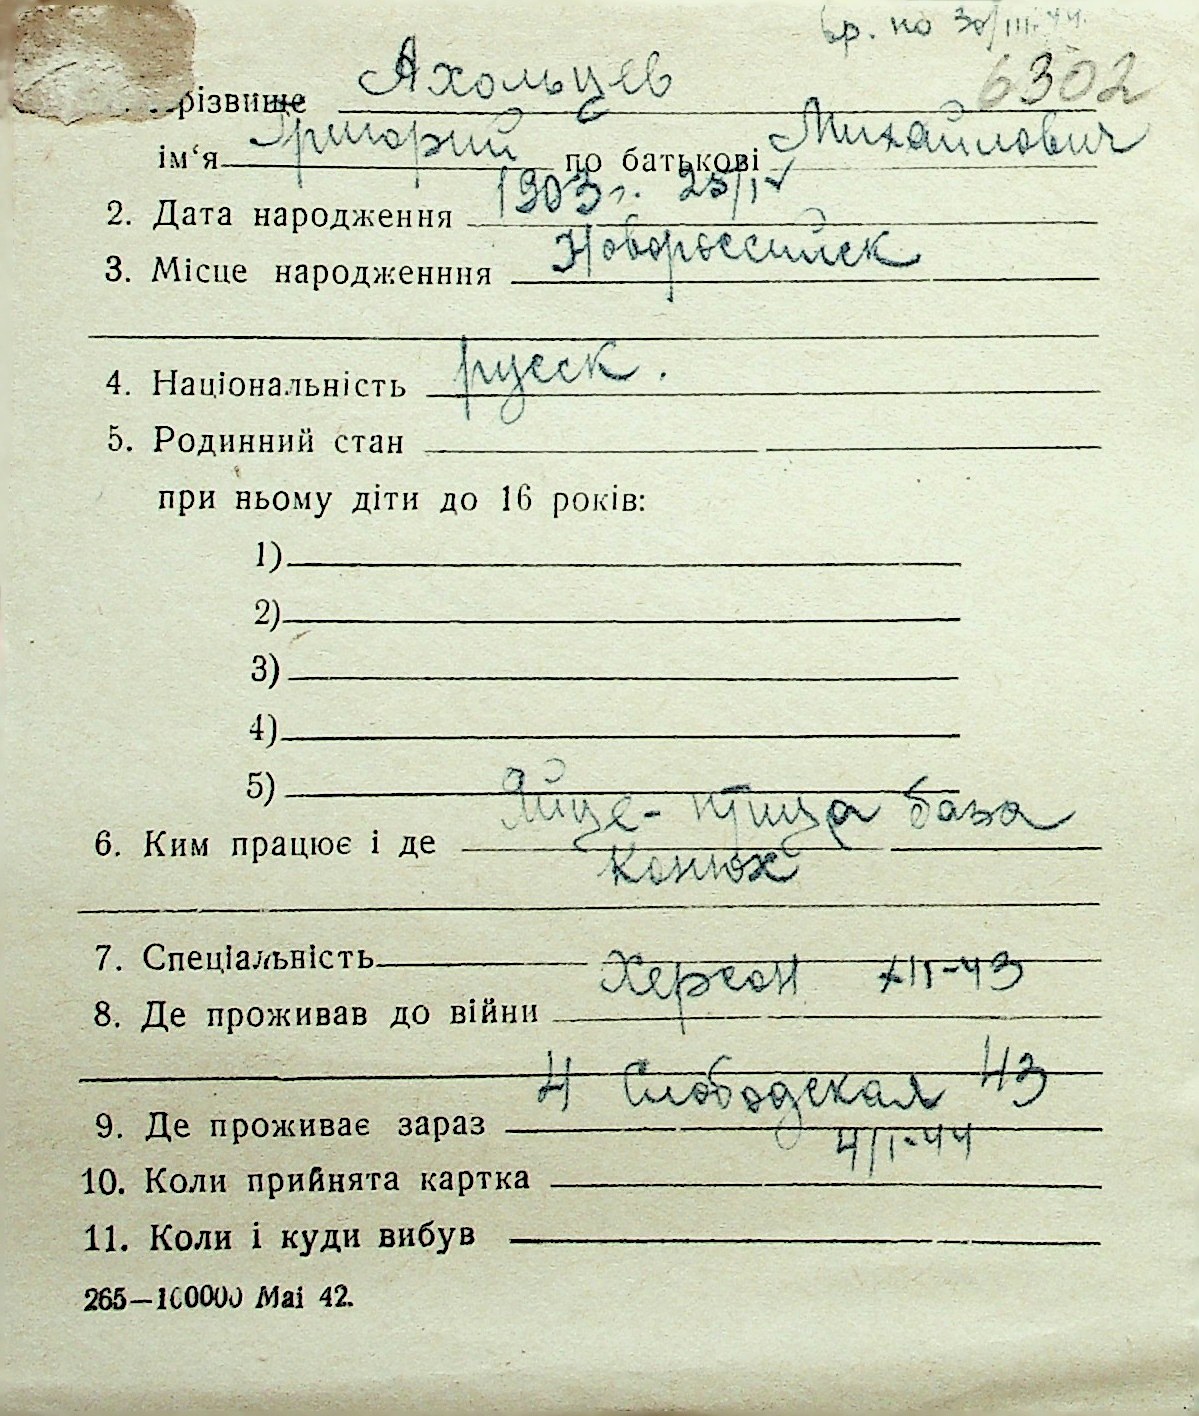 вр. по 30/III-44.
6302
різвище Ахольцев
ім‘я Григорий по батькові Михайлович
2. Дата народження 1903 г. 25/IV
3. Місце народженння Новороссийск
4. Національність русск.
5. Родинний стан
при ньому діти до 16 років:
1)
2)
3)
4)
5)
6. Ким працює і де Яйце-птица база
конюх
7. Спеціальність
8. Де проживав до війни Херсон XII-43
9. Де проживає зараз 4 Слободская 43
10. Коли прийнята картка 4/I-44
11. Коли і куди вибув
265—100000 Mai 42.